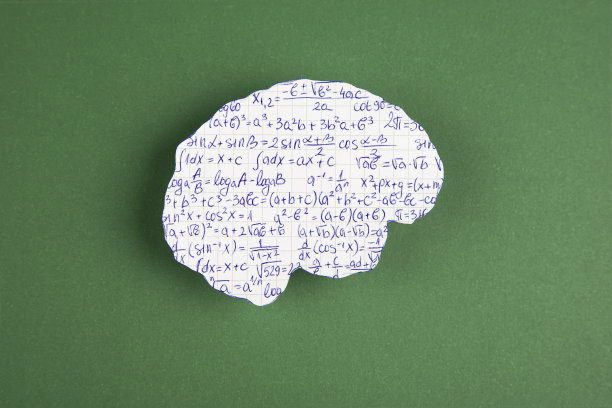 x₁,₂ = (-b ± √(b²-4ac))/2a
log b0 cot 90 =
(a+b)³ = a³ + 3a²b + 3b²a + b³ 2π = 36
sin α + sin β = 2 sin (α+β)/2 cos (α-β)/2 sin
∫1dx = x + c ∫adx = ax + c √ab = √a · √b
log a A/B = log a A - log a B a⁻¹ = 1/aⁿ x² + px + q = (x + m
³ + b³ + c³ - 3abc = (a+b+c)(a² + b² + c² - ab - bc - ca
sin² x + cos² x = 1 a² - b² = (a-b)(a+b) π = 3,1
(a + √b)² = a + 2√ab + b (a + √b)(a - √b) = a²
d/dx (sin⁻¹ x) = 1/√(1-x²) d/dx (cos⁻¹ x) = -1/√
∫dx = x + c √529 = 23 a/b + c/d = ad +
ⁿ√a = a^(1/n) log